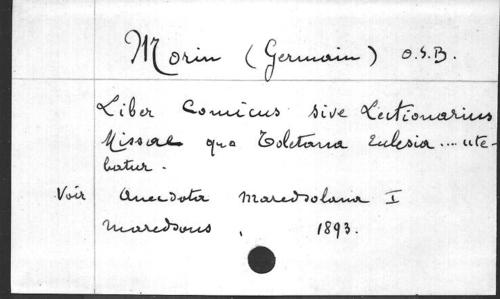 Morin (Germain) O.S.B.
Liber Comicus sive Lectionarius
Missae quo Toletana Eclesia .... ute-
batur.
Voir Anecdota Maredsolana I
Maredsous, 1893.